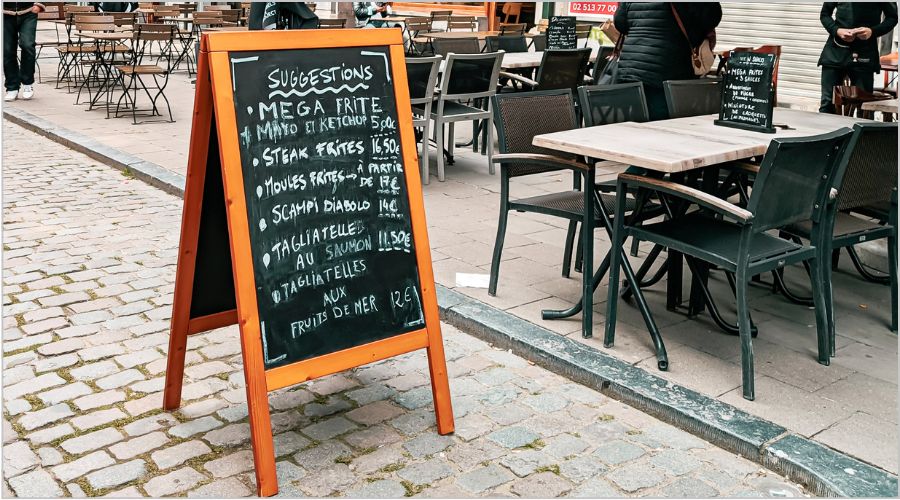 SUGGESTIONS
• MEGA FRITE
+ MAYO ET KETCHUP 5,00€
• STEAK FRITES 16,50€
• MOULES FRITES → À PARTIR
DE 17€
• SCAMPI DIABOLO 14€
• TAGLIATELLE
AU SAUMON 11.50€
• TAGLIATELLES
AUX
FRUITS DE MER 12€
02 513 77 00
MEGA FRITE
3 SAUCES
MINIATURE
DE